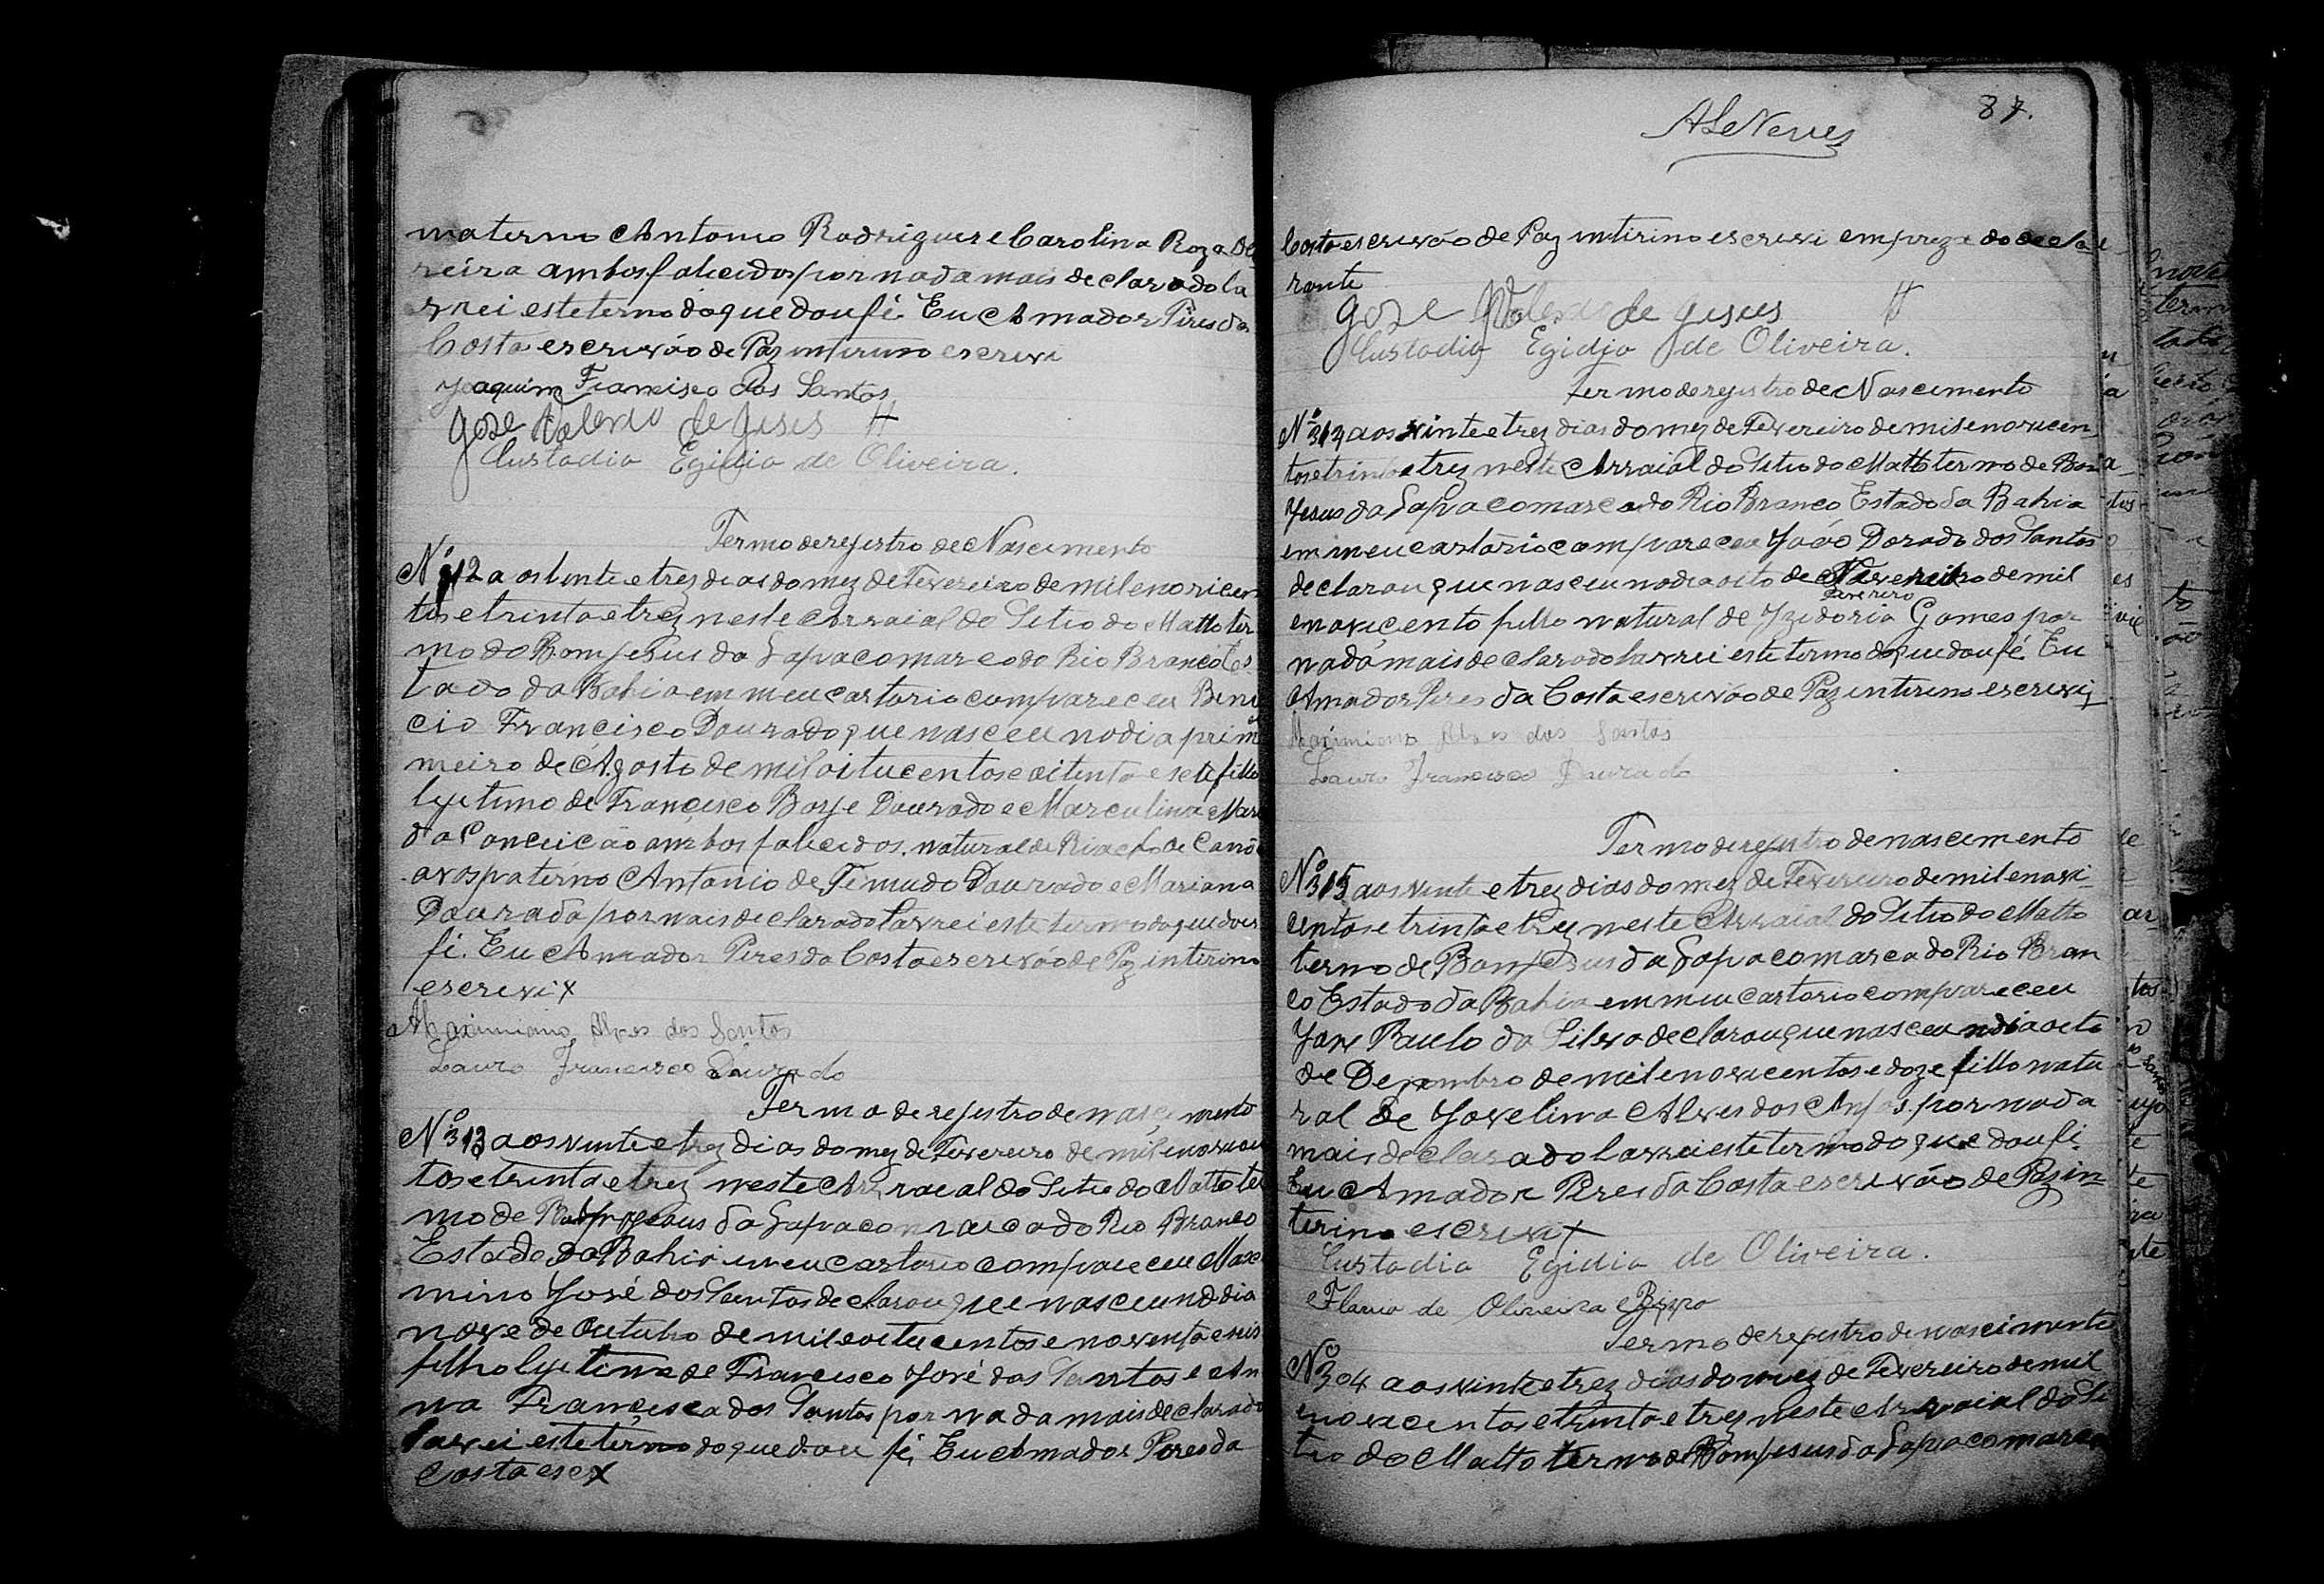 materno Antonio Rodrigues e Carolina Roza de
reira ambos falicidos por nada mais declarado la
vrei este termo do que dou fé Eu Amador Pires da
Costa escrivão de Paz interino escrevi
Joaquim Francisco dos Santos
Jose Valerio de Jesus
Custodio Egidio de Oliveira.
Termo de rejistro de Nascimento
Nº 312 a os vinte e trez dias do mez de Fevereiro de mil e novicen
tos e trinta e trez neste Arraial do Sitio do Matto ter
mo do Bom Jesus da Lapa comarca do Rio Branco Es
tado da Bahia em meu cartorio compareceu Bini
cio Francisco Dourado que nasceu no dia prim
meiro de Agosto de mil oitucentos e oitenta e sete fillo
lejetimo de Francisco Borje Dourado e Marculina Mari
da Conceicão ambos falicidos. natural de Riacho de Cano
avos paterno Antonio de Dourado e Mariana
Dourada por mais declarado lavrei este termo do que dou
fé. Eu Amador Peres da Costa escrivão de Paz intirino
escrevi x
Maximiano Alves dos Santos
Lauro Francisco Dourado
Termo de rejistro de nascimento
Nº 313 aos vinte e trez dias do mez de Fevereiro de mil e novicen
tos e trinta e trez neste Arraial do Sitio do Matto ter
mo de Jesus da Lapa comarca do Rio Branco
Estado da Bahia meu cartorio compareceu Maxi
mino José dos Santos declarou que nasceu no dia
nove de Outubro de mil oitucentos e noventa e seis
filho lejetimo de Francisco José dos Santos e An
na Francisca dos Santos por nada mais declarado
lavrei este termo do que dou fé, Eu Amador Peres da
Costa esc x
ALeNeves
87.
Costa escrivão de Paz intirino escrevi em do decla
rante
Jose Valerio de Jesus
Custodio Egidio de Oliveira.
Termo de rejistro de Nascimento
Nº 314 aos vinte e trez dias do mez de Fevereiro de mil e novicen
tos e trinta e trez neste Arraial do Sitio do Matto termo de Bom
Jesus da Lapa comarca do Rio Branco Estado da Bahia
em meu cartorio compareceu João Dorado dos Santos
declarou que nasceu no dia oito de Fevereiro de mil
Fevereiro
e novicento fillo natural de Izidoria Gomes por
nada mais declarado lavrei este termo do que dou fé Eu
Amador Peres da Costa escrivão de Paz interino escrevi
Maximiano Alves dos Santos
Lauro Francisco Dourado
Termo de rejistro de nascimento
Nº 315 aos vinte e trez dias do mez de Fevereiro de mil e novi
centos e trinta e trez neste Arraial do Sitio do Matto
termo de Bom Jesus da Lapa comarca do Rio Bran
co Estado da Bahia em meu cartorio compareceu
Jose Paulo da Silva declarou que nasceu no dia oito
de Dezembro de mil e novicentos e doze fillo natu
ral de Jovelina Alves dos Anjos. por nada
mais declarado lavrei este termo do que dou fé.
Eu Amador Peres da Costa escrivão de Paz in
terino escrevi x
Custodio Egidio de Oliveira.
Flavio de Oliveira Bispo
Termo de rejistro de nascimento
Nº 304 aos vinte e trez dias do mez de Fevereiro de mil
e novicentos e trinta e trez neste Arraial do Si
tio do Matto termo de Bom Jesus da Lapa comarca